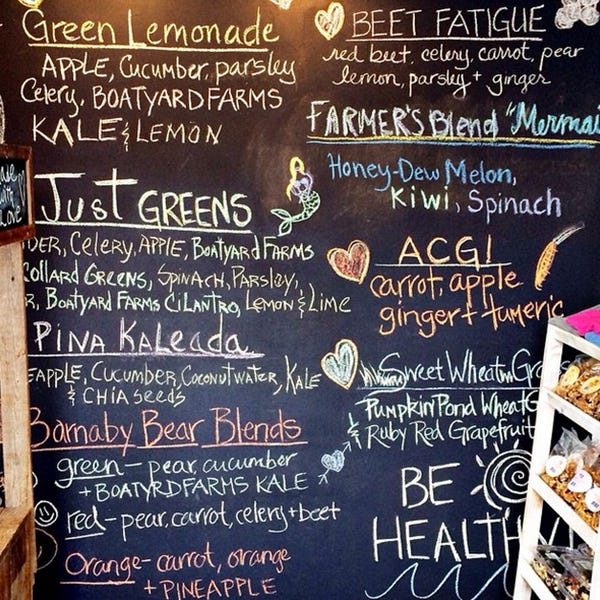 Green Lemonade
APPLE, Cucumber, parsley
Celery, BOATYARD FARMS
KALE & LEMON
Just GREENS
DER, Celery, APPLE, BOATYARD FARMS
COLLARD GREENS, SPINACH, PARSLEY,
R, BOATYARD FARMS CILANTRO, LEMON & LIME
PINA KALEADA
EAPPLE, CUCUMBER, COCONUT WATER, KALE
& CHIA Seeds
Barnaby Bear Blends
green - pear, cucumber
+ BOATYRD FARMS KALE
red - pear, carrot, celery + beet
Orange - carrot, orange
+ PINEAPPLE
BEET FATIGUE
red beet, celery, carrot, pear
lemon, parsley + ginger
FARMER'S Blend "Mermai
Honey-Dew Melon,
Kiwi, Spinach
ACG!
carrot, apple
ginger + tumeric
Sweet Wheat Gra
Pumpkin Pond WheatG
& Ruby Red Grapefruit
BE
HEALTHY
Love